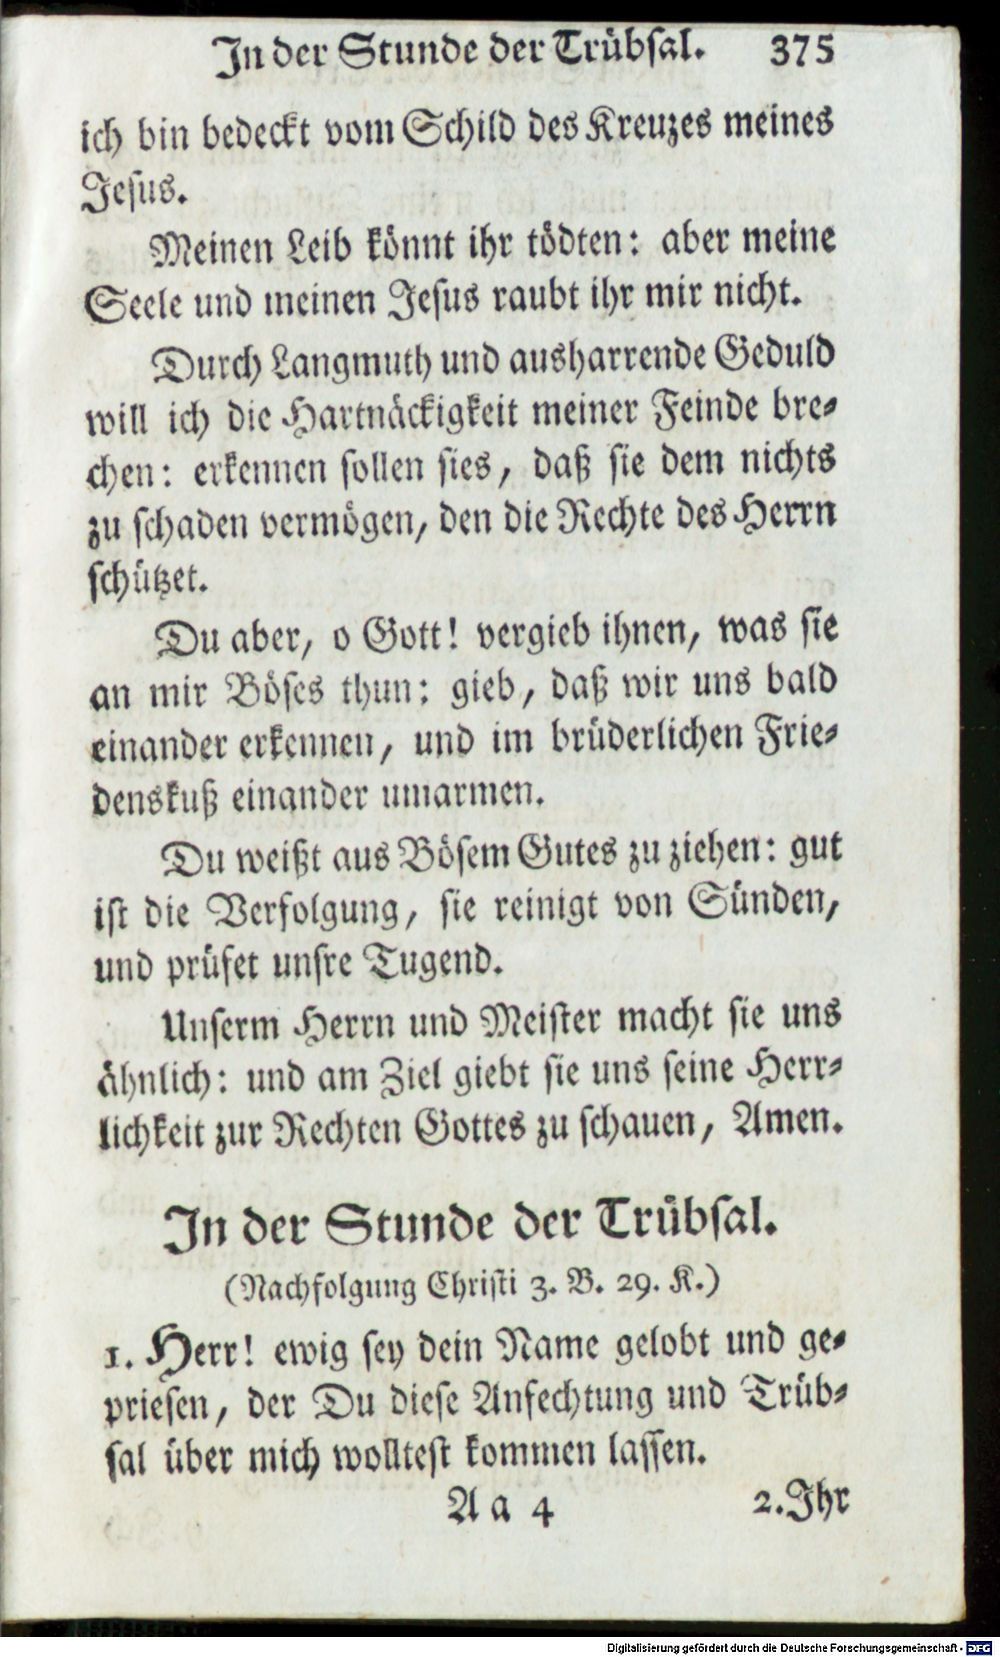 In der Stunde der Trübsal. 375
ich bin bedeckt vom Schild des Kreuzes meines
Jesus.
Meinen Leib könnt ihr tödten: aber meine
Seele und meinen Jesus raubt ihr mir nicht.
Durch Langmuth und ausharrende Geduld
will ich die Hartnäckigkeit meiner Feinde bre-
chen: erkennen sollen sies, daß sie dem nichts
zu schaden vermögen, den die Rechte des Herrn
schützet.
Du aber, o Gott! vergieb ihnen, was sie
an mir Böses thun: gieb, daß wir uns bald
einander erkennen, und im brüderlichen Frie-
denskuß einander umarmen.
Du weißt aus Bösem Gutes zu ziehen: gut
ist die Verfolgung, sie reinigt von Sünden,
und prüfet unsre Tugend.
Unserm Herrn und Meister macht sie uns
ähnlich: und am Ziel giebt sie uns seine Herr-
lichkeit zur Rechten Gottes zu schauen, Amen.
In der Stunde der Trübsal.
(Nachfolgung Christi 3. B. 29. K.)
1. Herr! ewig sey dein Name gelobt und ge-
priesen, der Du diese Anfechtung und Trüb-
sal über mich wolltest kommen lassen.
A a 4 2. Ihr
Digitalisierung gefördert durch die Deutsche Forschungsgemeinschaft - DFG